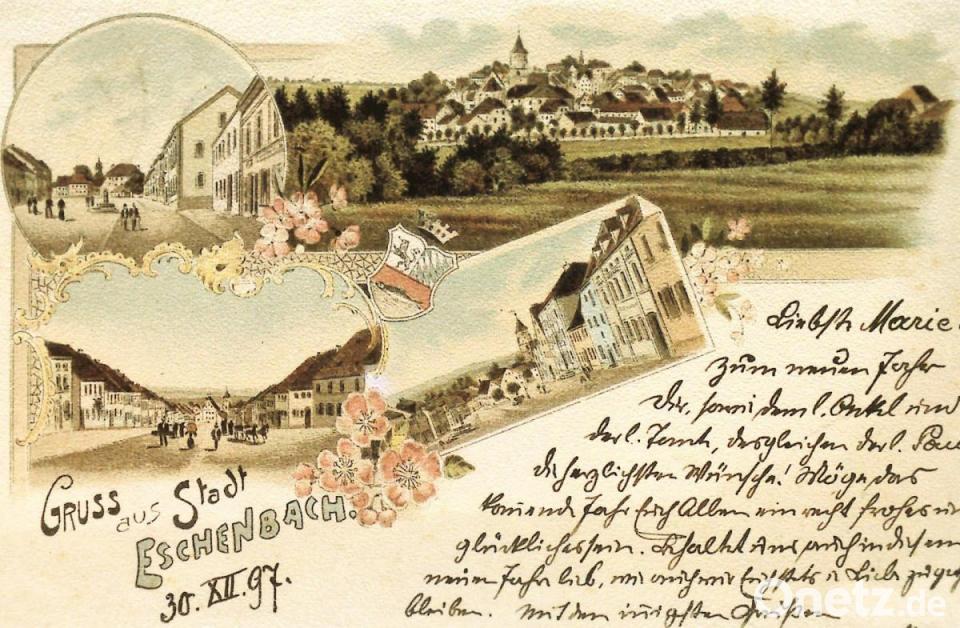 Gruss aus Stadt
Eschenbach.
30. XII. 97.
Liebste Marie
zum neuen Jahre
Dir, sowie dem l. Onkel und
der l. Tante, desgleichen der l.
die herzlichsten Wünsche! Möge das
komende Jahr Euch Allen ein recht frohes u
glückliches sein. Erhaltet uns auch in diesem
neuen Jahr lieb, wie auch wir Euch stets in Liebe
bleiben. Mit den innigsten Grüßen
Onetz.de